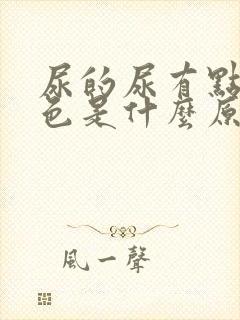 尿的尿有點
色是什麼原
風一聲